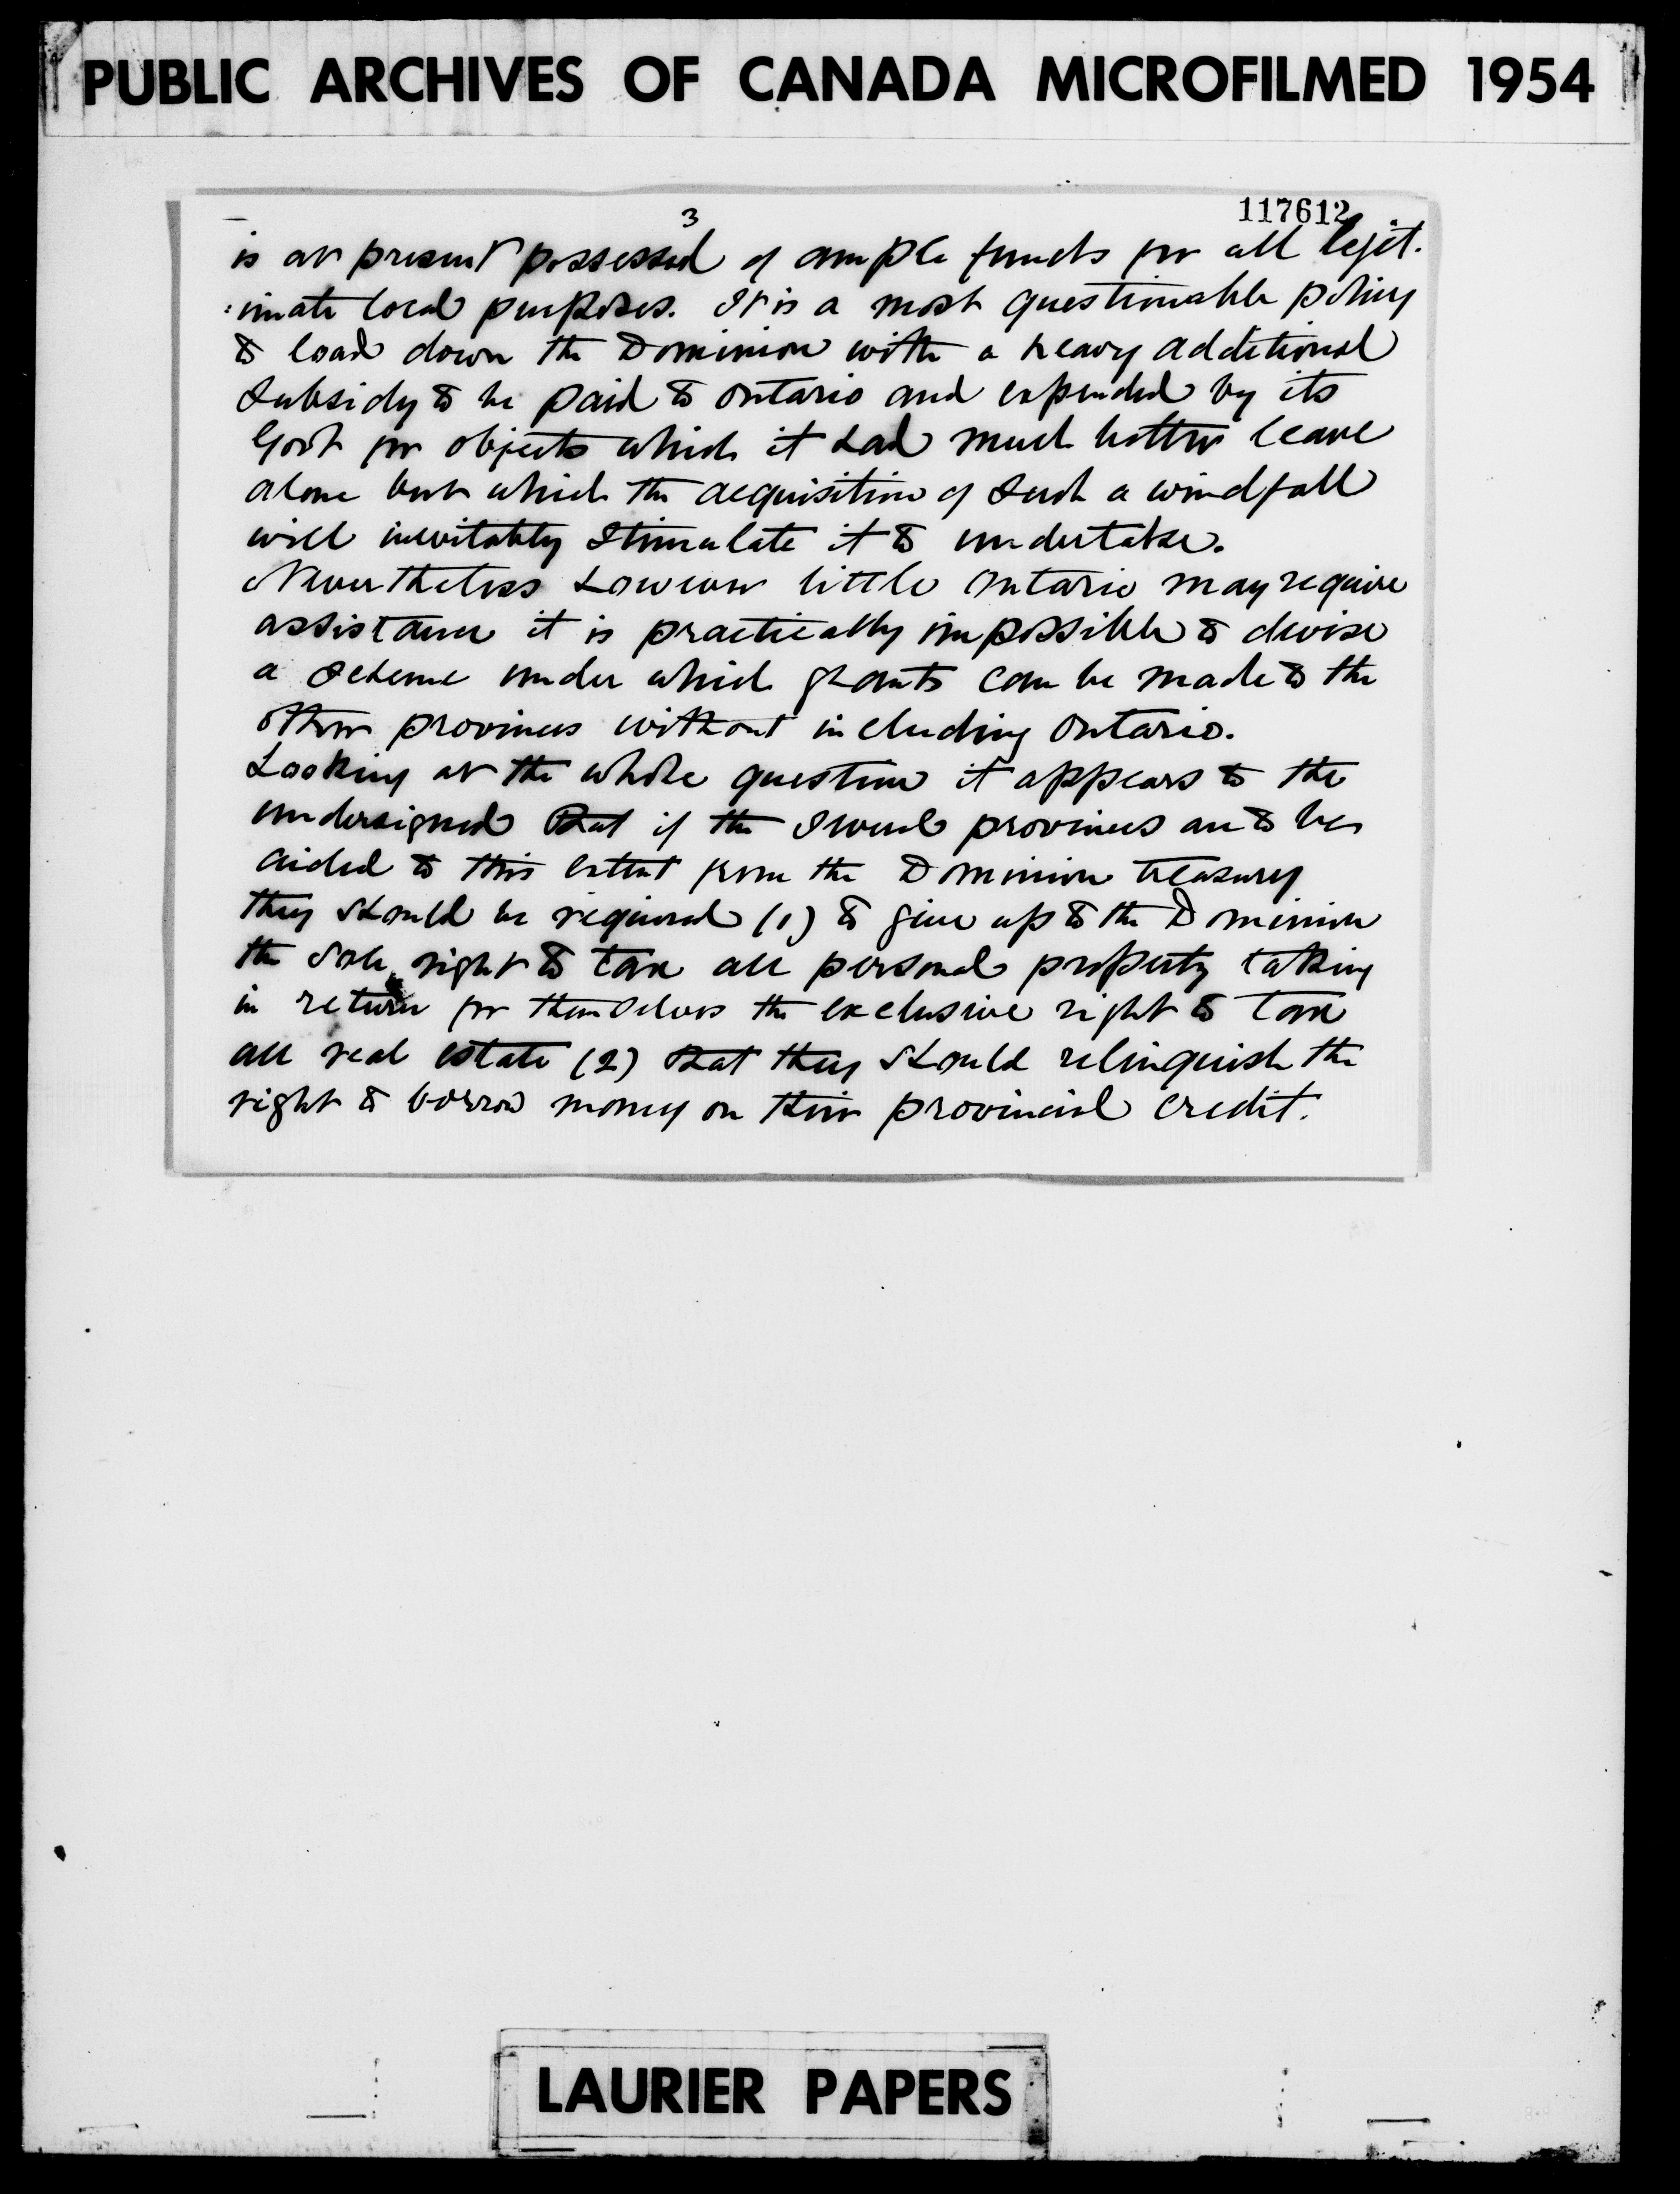 PUBLIC ARCHIVES OF CANADA MICROFILMED 1954
117612
3
is at present possessed of ample funds for all legit-
:imate local purposes. It is a most questionable policy
to load down the Dominion with a heavy additional
subsidy to be paid to Ontario and expended by its
Govt for objects which it had much better leave
alone but which the acquisition of such a windfall
will inevitably stimulate it to undertake.
Nevertheless however little Ontario may require
assistance it is practically impossible to devise
a scheme under which grants can be made to the
other provinces without including Ontario.
Looking at the whole question it appears to the
undersigned that if the several provinces are to be
aided to this extent from the Dominion treasury
they should be required (1) to give up to the Dominion
the sole right to tax all personal property taking
in return for themselves the exclusive right to tax
all real estate (2) that they should relinquish the
right to borrow money on their provincial credit.
LAURIER PAPERS